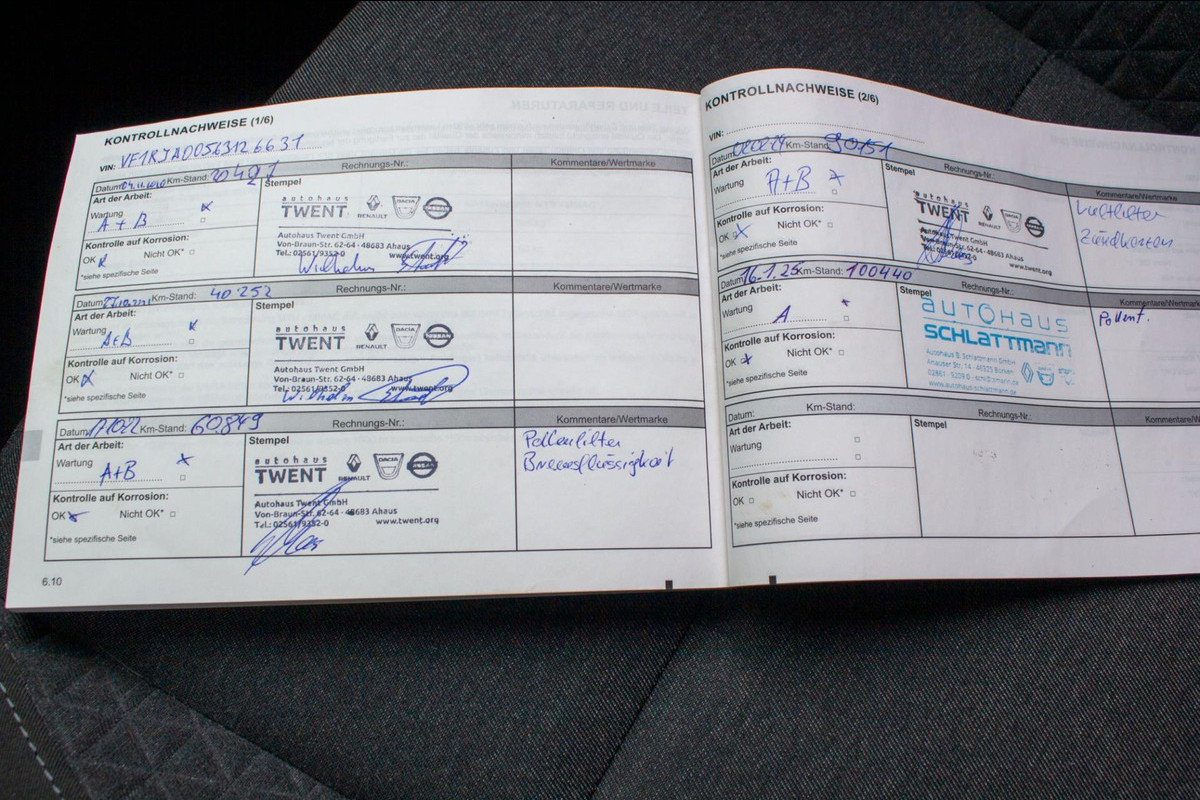 KONTROLLNACHWEISE (1/6)
VIN: VF1RJA00563126631
Datum: Km-Stand: Rechnungs-Nr.: Kommentare/Wertmarke
Art der Arbeit: Stempel
Wartung
A + B
Kontrolle auf Korrosion:
OK Nicht OK*
*siehe spezifische Seite
autohaus
TWENT RENAULT DACIA NISSAN
Autohaus Twent GmbH
Von-Braun-Str. 62-64 - 48683 Ahaus
Tel.: 02561/9352-0 www.twent.org
Wilhelm
Datum: Km-Stand: 40 252 Rechnungs-Nr.: Kommentare/Wertmarke
Art der Arbeit: Stempel
Wartung
A+B
Kontrolle auf Korrosion:
OK Nicht OK*
*siehe spezifische Seite
autohaus
TWENT RENAULT DACIA NISSAN
Autohaus Twent GmbH
Von-Braun-Str. 62-64 - 48683 Ahaus
Tel.: 02561/9352-0 www.twent.org
Wilhelm
Datum: Km-Stand: 60849 Rechnungs-Nr.: Kommentare/Wertmarke
Art der Arbeit: Stempel
Wartung
A+B
Kontrolle auf Korrosion:
OK Nicht OK*
*siehe spezifische Seite
autohaus
TWENT RENAULT DACIA NISSAN
Autohaus Twent GmbH
Von-Braun-Str. 62-64 - 48683 Ahaus
Tel.: 02561/9352-0 www.twent.org
Pollenfilter
Bremsflüssigkeit
6.10
KONTROLLNACHWEISE (2/6)
VIN:
Datum: Km-Stand: 90151 Rechnungs-Nr.: Kommentare/Wertmarke
Art der Arbeit: Stempel
Wartung A+B
Kontrolle auf Korrosion:
OK Nicht OK*
*siehe spezifische Seite
autohaus
TWENT RENAULT DACIA
Autohaus Twent GmbH
Von-Braun-Str. 62-64 - 48683 Ahaus
Tel.: 02561/9352-0
www.twent.org
Luftfilter
Zündkerzen
Datum: 16.1.25 Km-Stand: 100440 Rechnungs-Nr.: Kommentare/Wertmarke
Art der Arbeit: Stempel
Wartung A
Kontrolle auf Korrosion:
OK Nicht OK*
*siehe spezifische Seite
autohaus
schlattmann
Autohaus B. Schlattmann GmbH
Ahauser Str. 14 - 46325 Borken
www.autohaus-schlattmann.de
Pollenf.
Datum: Km-Stand: Rechnungs-Nr.:
Art der Arbeit: Stempel
Wartung
Kontrolle auf Korrosion:
OK Nicht OK*
*siehe spezifische Seite